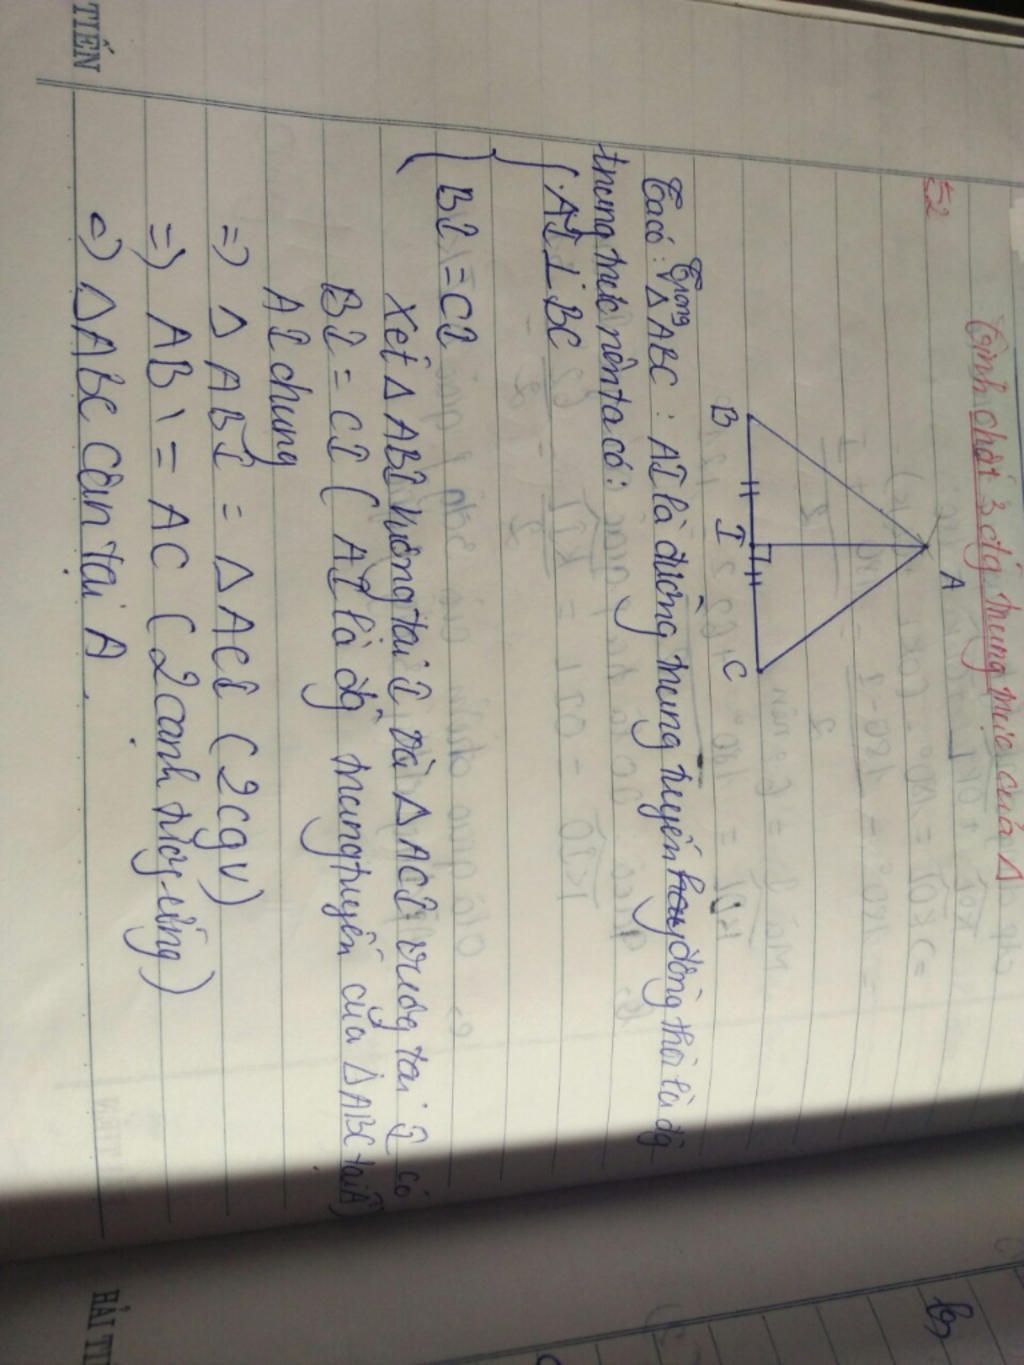 Tính chất 3 đg trung trực của Δ
52
A
B I C
Trong
Ta có : Δ ABC : AI là đường trung tuyến đồng thời là đg
trung trực nên ta có:
{ AI ⊥ BC
{ BI = CI
Xét Δ ABI vuông tại I và Δ ACI vuông tại I có
BI = CI ( AI là đg trung tuyến của Δ ABC tại A )
AI chung
=> Δ ABI = Δ ACI ( 2cgv )
=> AB = AC ( 2 cạnh tương ứng )
=> Δ ABC cân tại A .
TIẾN
HẢI TI